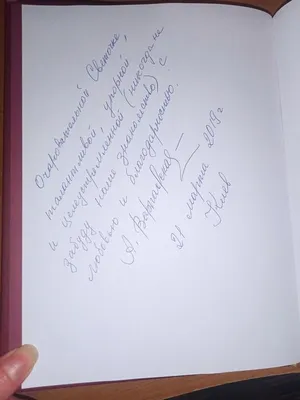 Очаровательной Светочке,
талантливой, упорной
и целеустремленной (никогда не
забуду наше знакомство) с
любовью и благодарностью.
А.
21 марта 2019 г
Киев